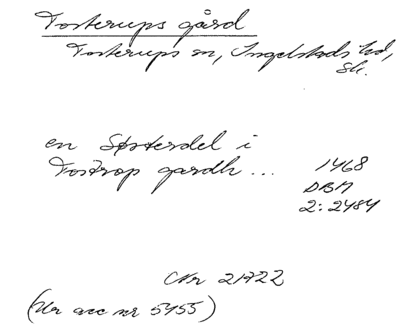 Tosterups gård
Tosterups sn, Ingelstads hd,
Sk.
en Søsterdel i
Tostrop gardh...
1468
DBM
2:2484
CNr 21722
(Ur acc nr 5455)